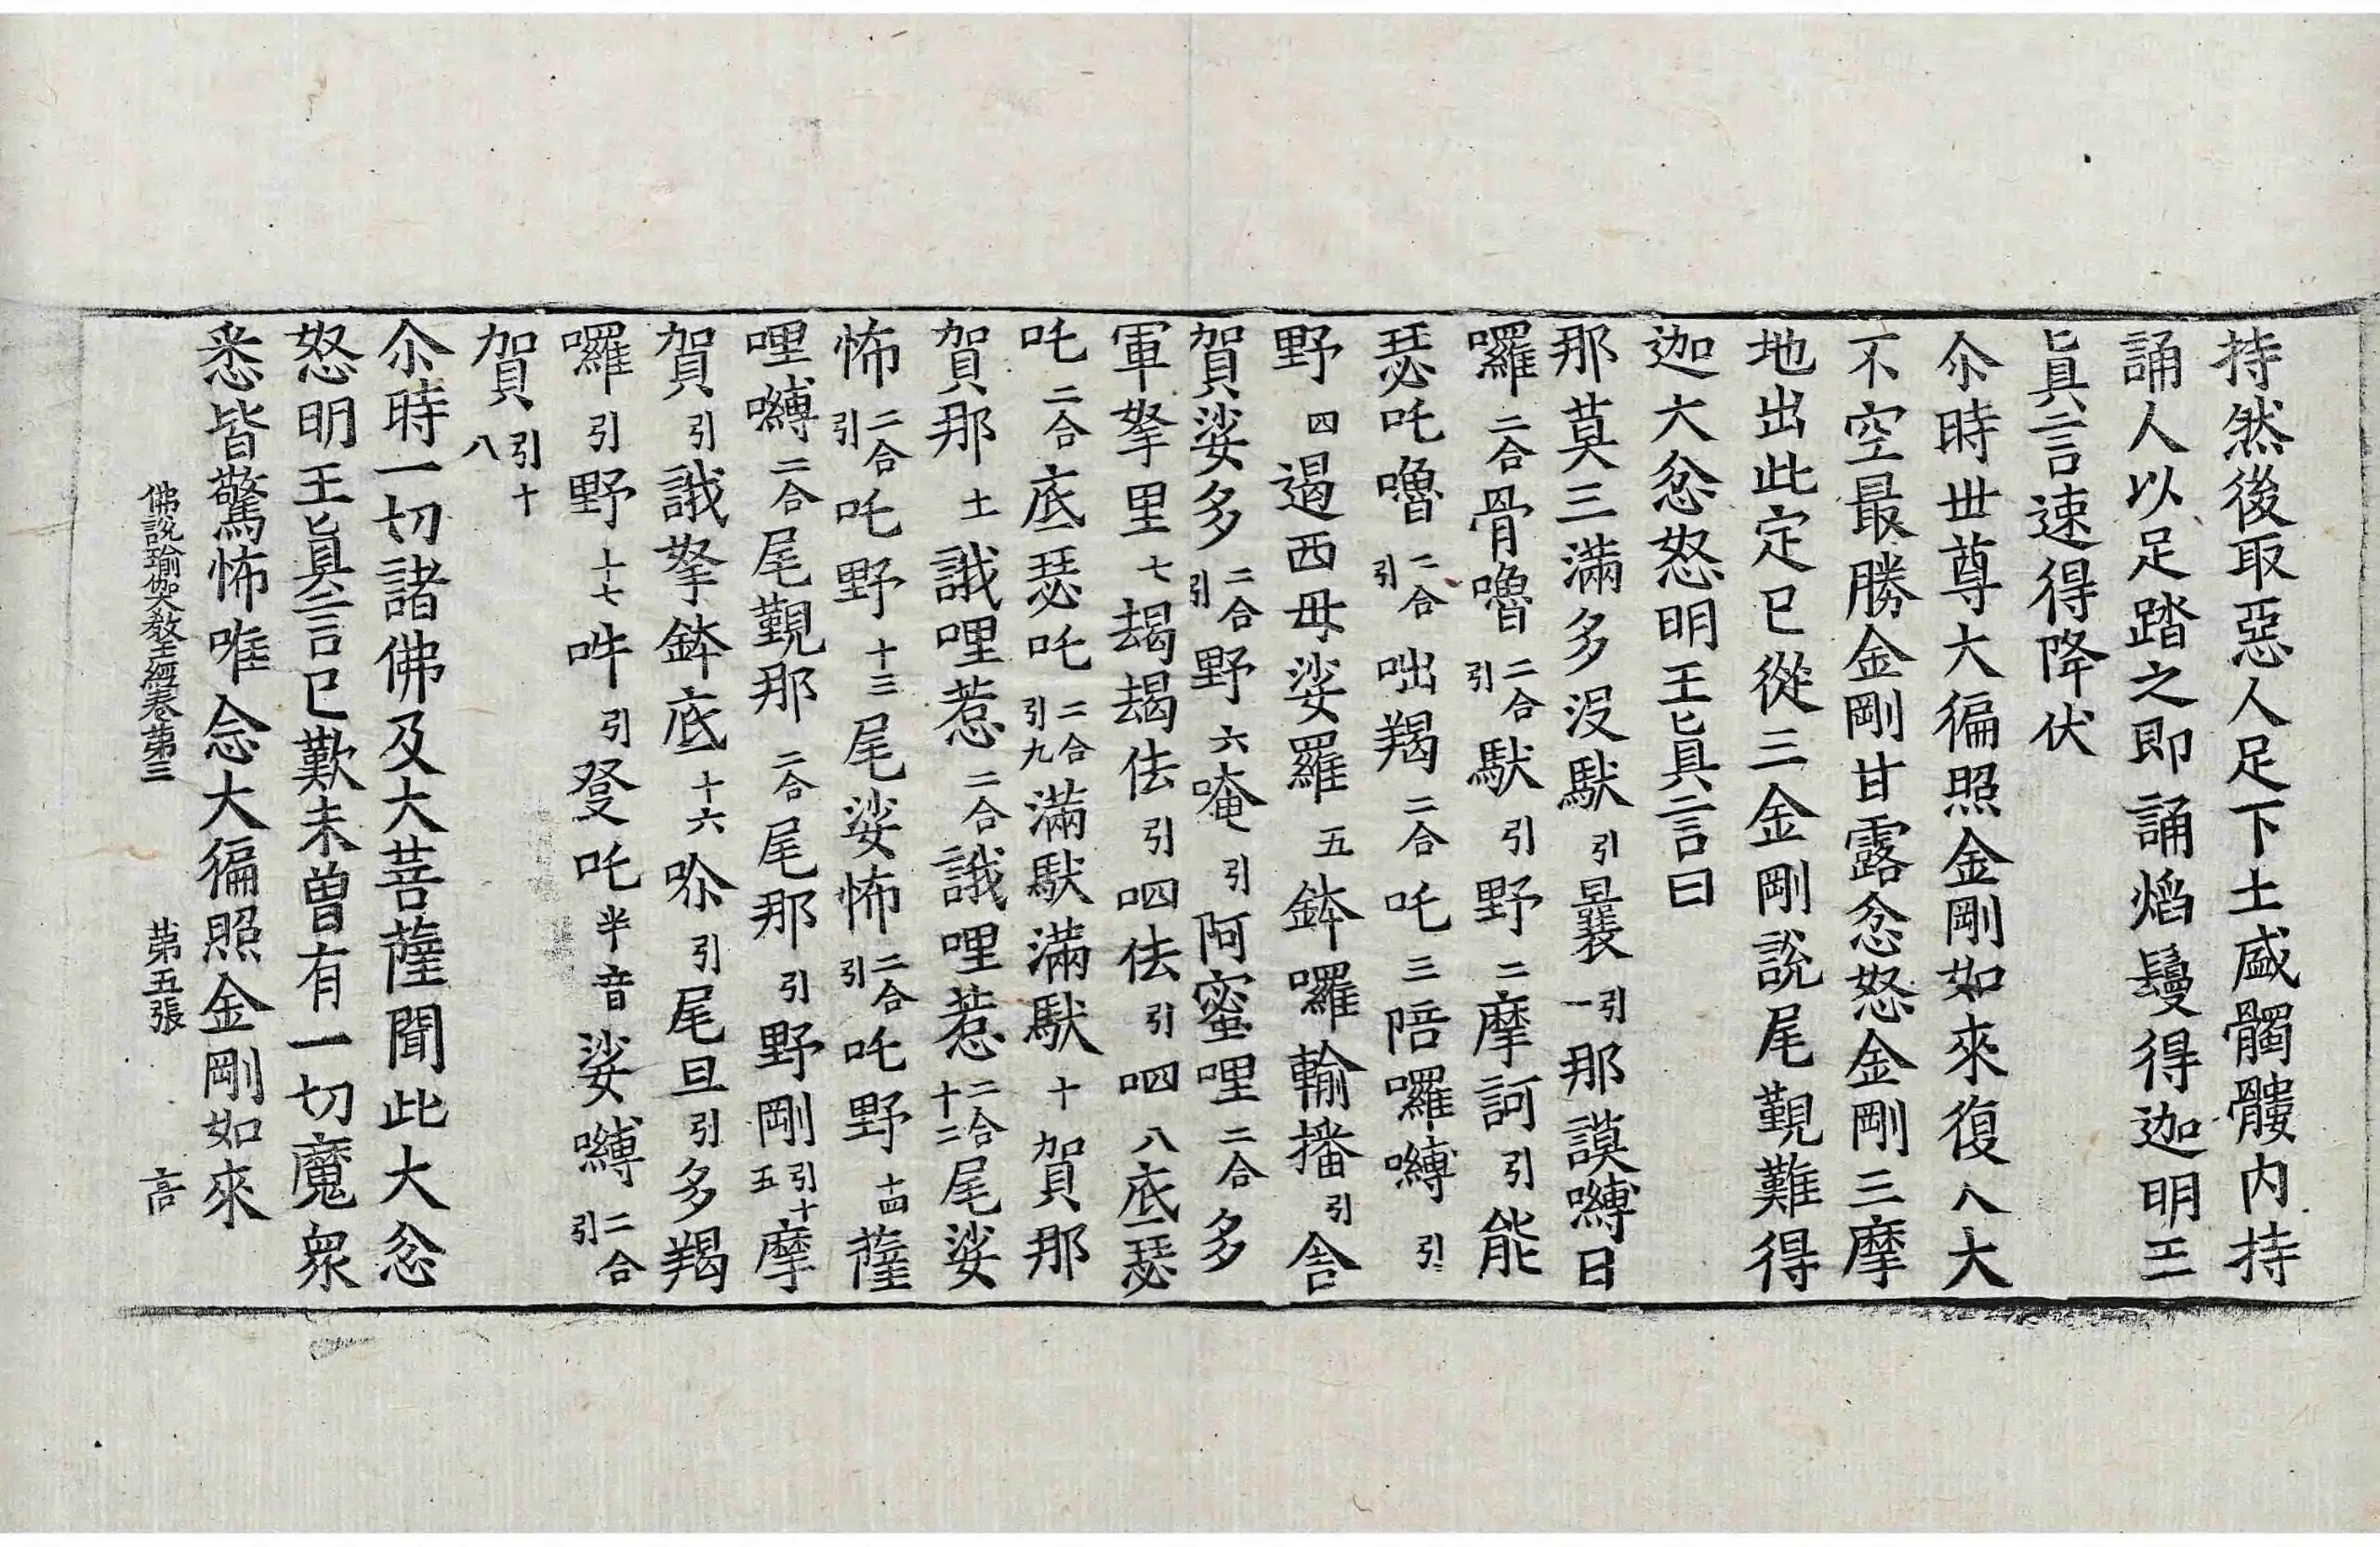 持然後取惡人足下土盛髑髏內持
誦人以足踏之即誦焰鬘得迦明王
眞言速得降伏
尒時世尊大徧照金剛如來復入大
不空最勝金剛甘露忿怒金剛三摩
地出此定已從三金剛說尾覲難得
迦大忿怒明王眞言曰
那莫三滿多沒馱引曩引一那謨嚩日
囉二合骨嚕二合引馱引野二摩訶引能
瑟吒嚕二合引咄羯二合吒三陪囉嚩引
野四遏西毋娑羅五鉢囉輸播引舍
賀娑多二合引野六唵引阿蜜哩二合多
軍拏里七朅朅佉引呬佉引呬八底瑟
吒二合底瑟吒二合引九滿馱滿馱十賀那
賀那十一誐哩惹二合誐哩惹二合十二尾娑
怖二合引吒野十三尾娑怖二合引吒野十四薩
哩嚩二合尾覲那二合尾那引野剛引十五摩
賀引誐拏鉢底十六唋引尾旦引多羯
囉引野十七吽引發吒半音娑嚩二合引
賀引十八
尒時一切諸佛及大菩薩聞此大忿
怒明王眞言已歎未曾有一切魔衆
悉皆驚怖唯念大徧照金剛如來
佛說瑜伽大教王經卷第三 第五張 言